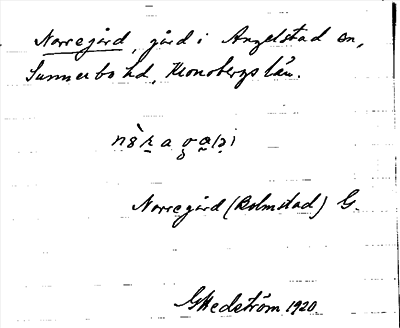 Norregård, gård i Angelstad sn,
Sunnerbo hd, Kronobergs län.
Norregård (Bolmstad) G.
GHedström 1920